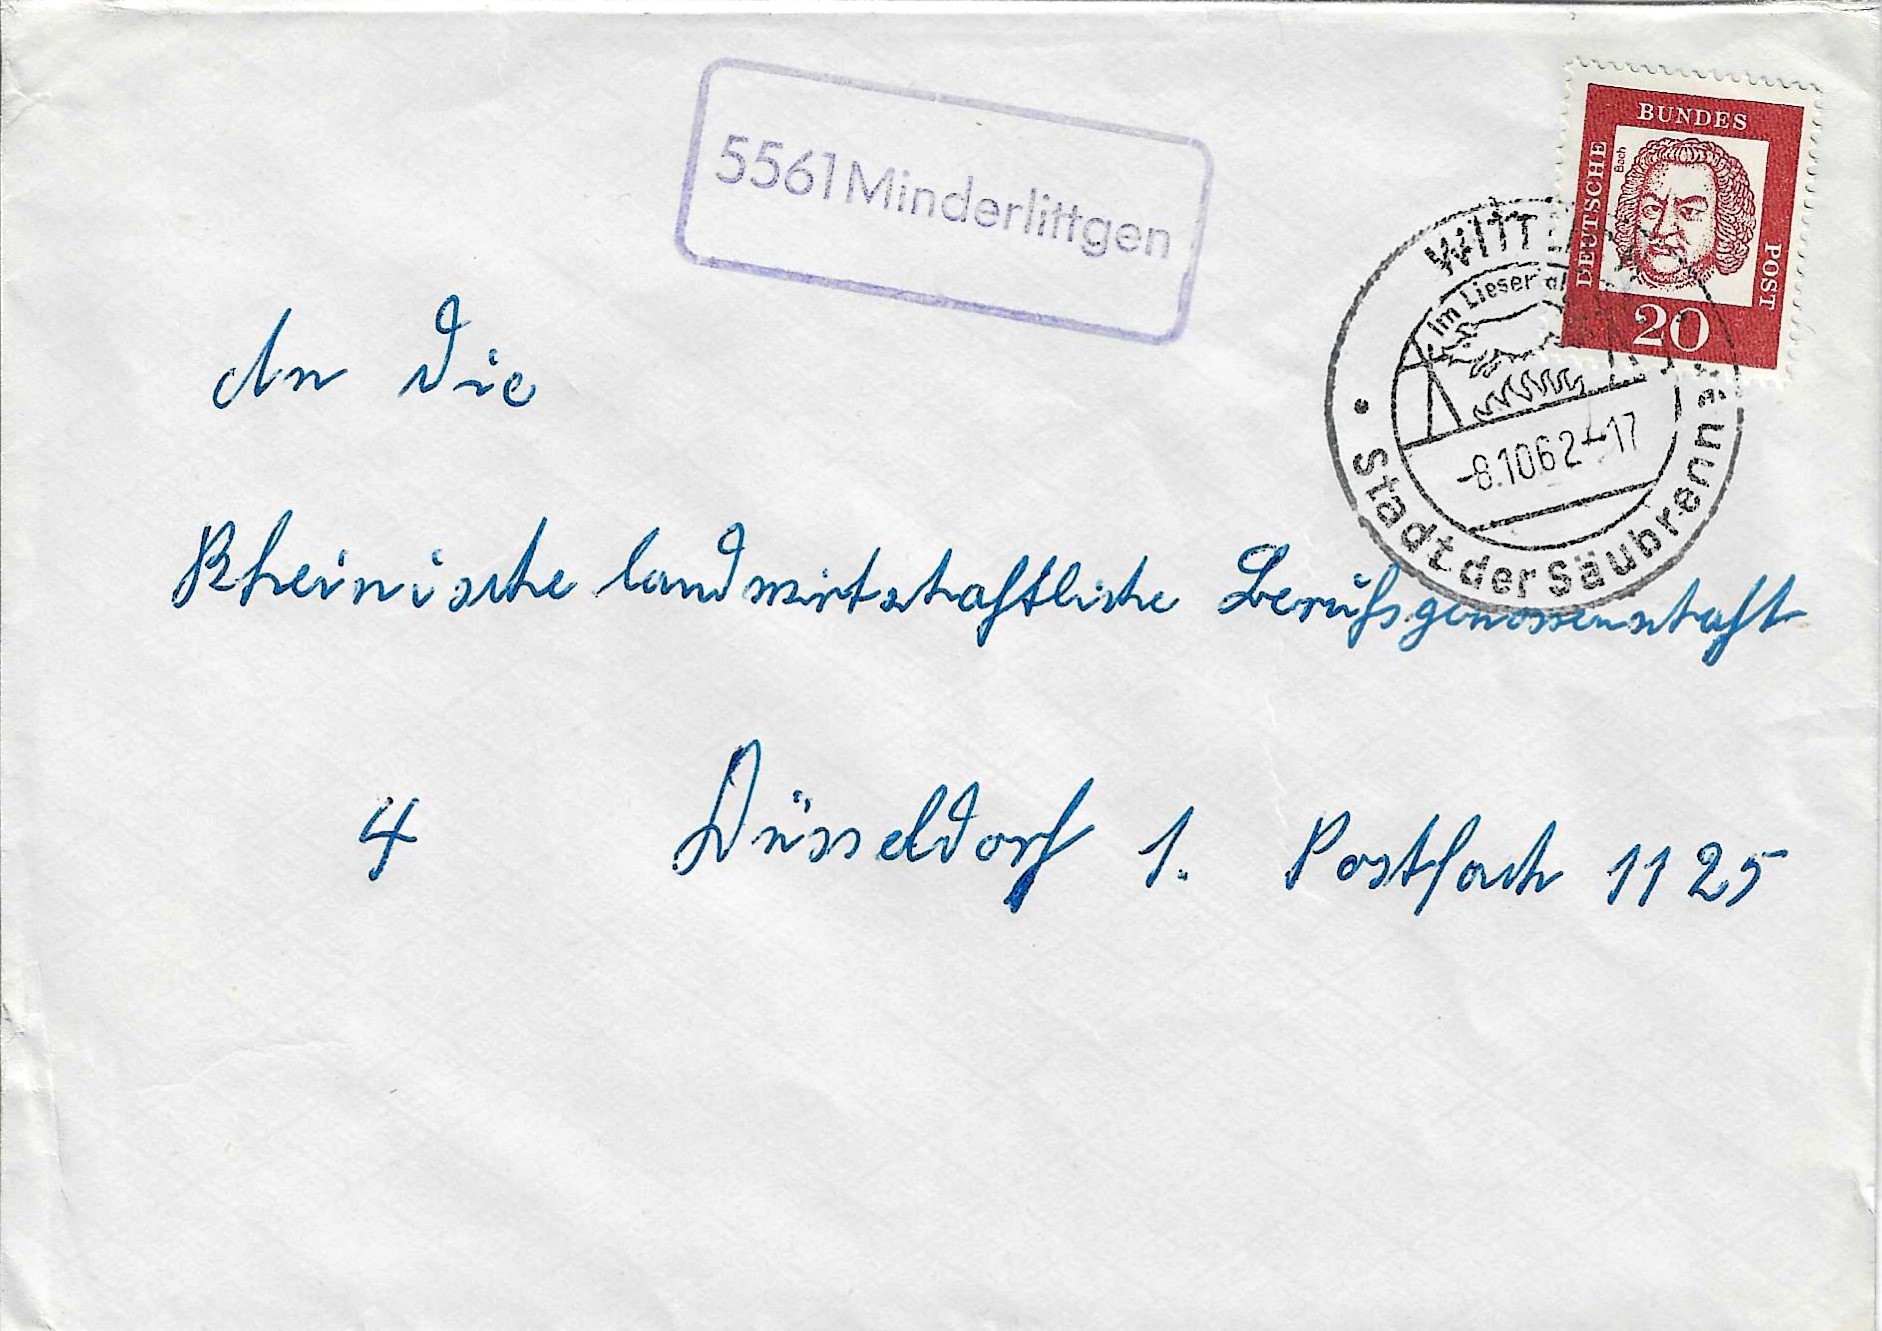 5561 Minderlittgen
BUNDES
DEUTSCHE
POST
Bach
20
Im Lieser
-8.10.62-17
Stadt der Säubrenn
An die
Rheinische landwirtschaftliche Berufsgenossenschaft
4 Düsseldorf 1. Postfach 1125